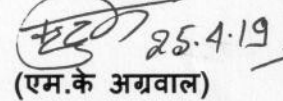 25.4.19
(एम.के अग्रवाल)